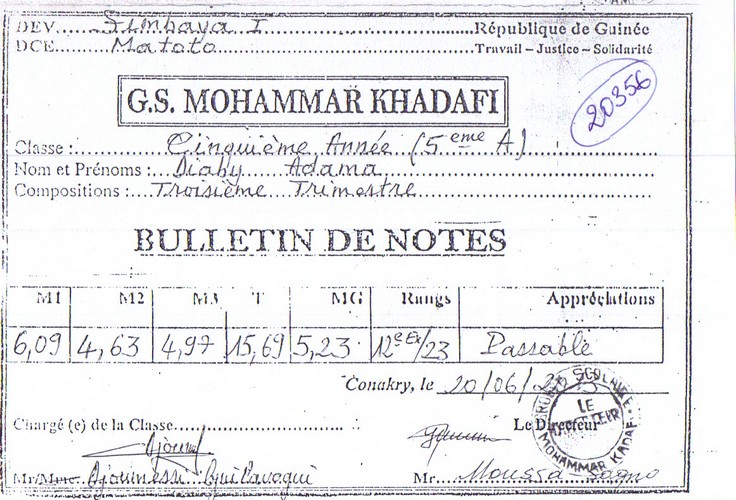 DEV....Simbaya I.........République de Guinée
DCE....Matoto.........Travail – Justice – Solidarité
20356
G.S. MOHAMMAR KHADAFI
Classe :.........Cinquième Année (5 eme A)
Nom et Prénoms :...Diaby Adama
Compositions :...Troisième Trimestre
BULLETIN DE NOTES
M1 M2 M3 T MG Rangs Appréciations
6,09 4,63 4,97 15,69 5,23 12e Ex/23 Passable
Conakry, le 20/06/
LE
DIRECTEUR
MOHAMMAR KADAFI
Chargé (e) de la Classe......... Le Directeur
Mr/Mme. Mr....Moussa